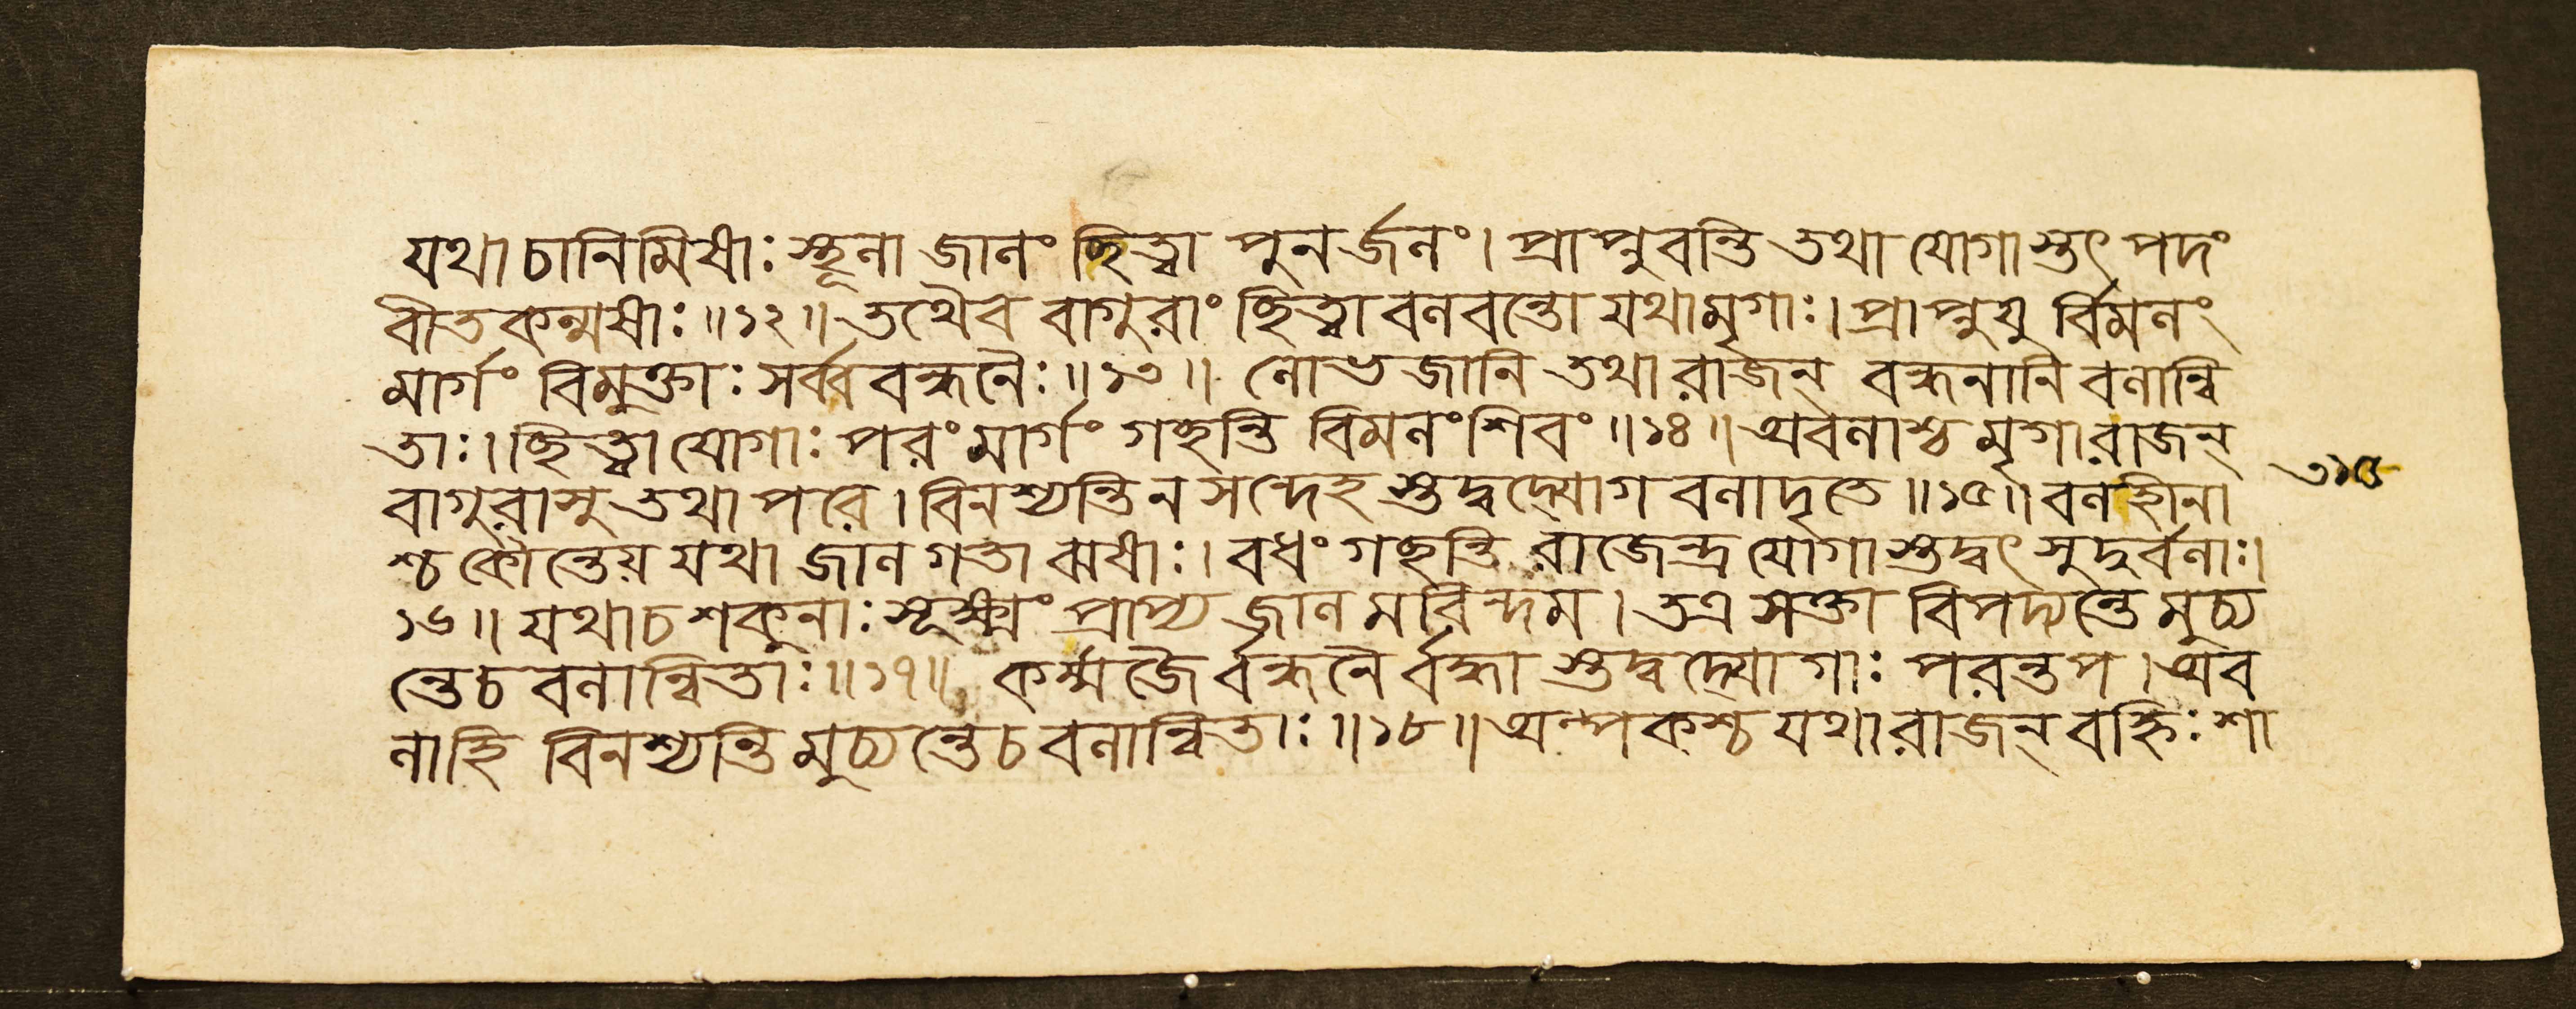 যথা চানিমিষাঃ স্থূলা জালং ছিত্ত্বা পুনর্জলং। প্রাপ্নুবন্তি তথা যোগাস্তৎ পদং
বীতকল্মষাঃ॥১২॥ তথৈব বাগুরাং ছিত্ত্বা বলবন্তো যথা মৃগাঃ। প্রাপ্নুযু র্বিমলং
মার্গং বিমুক্তাঃ সর্ব্ববন্ধনৈঃ॥১৩॥ লোভজানি তথা রাজন্ বন্ধনানি বলান্বি
তাঃ। ছিত্ত্বা যোগাঃ পরং মার্গং গচ্ছন্তি বিমলং শিবং॥১৪॥ অবলাশ্চ মৃগা রাজন্
বাগুরাসু তথাপরে। বিনশ্যন্তি ন সন্দেহ স্তদ্বদ্যোগ বলাদৃতে॥১৫॥ বলহীনা
শ্চ কৌন্তেয় যথা জালগতা ঝষাঃ। বধং গচ্ছন্তি রাজেন্দ্র যোগাস্তদ্বৎ সুদুর্বলাঃ।
১৬॥ যথা চ শকুনাঃ সূক্ষ্মং প্রাপ্য জালমরিন্দম। তত্র সক্তা বিপদ্যন্তে মুচ্য
ন্তে চ বলান্বিতাঃ॥১৭॥ কর্ম্মজৈর্বন্ধনৈর্বদ্ধা স্তদ্বদ্যোগাঃ পরন্তপ। অব
লা হি বিনশ্যন্তি মুচ্যন্তে চ বলান্বিতাঃ॥১৮॥ অল্পকশ্চ যথা রাজন্ বহ্নিঃ শা
৩১৫